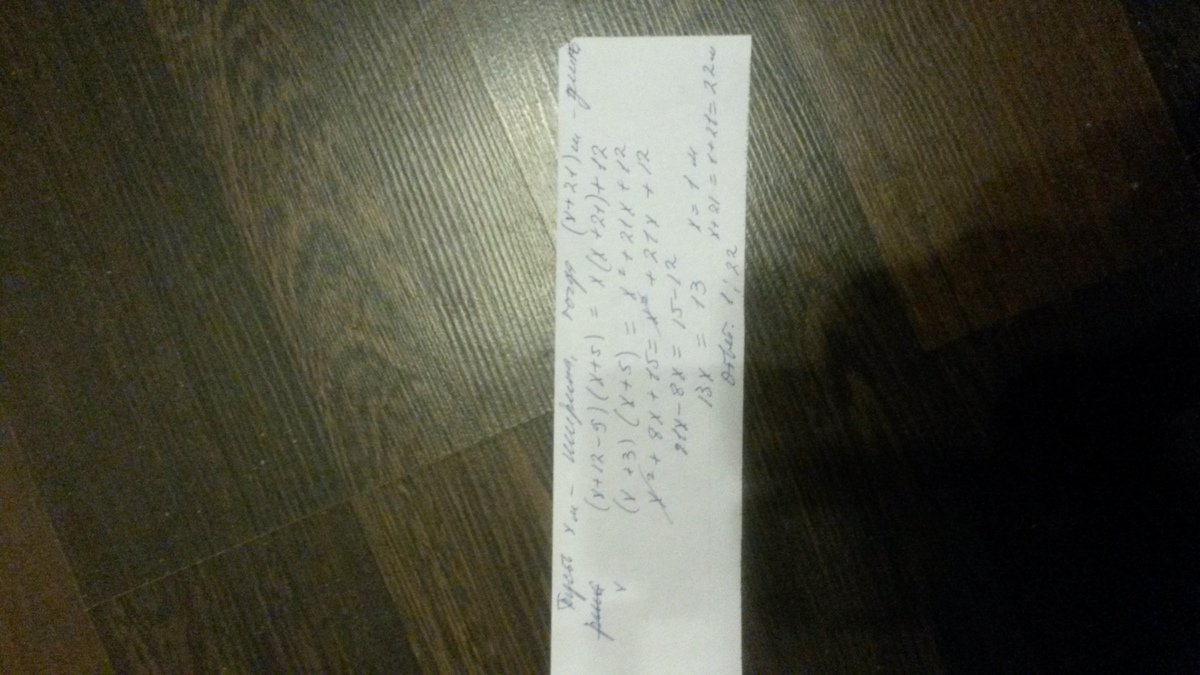 Пусть x м - ширина, тогда (x+21) м - длина
(x+12-5)(x+5) = x(x+21)+12
(x+3)(x+5) = x²+21x+12
x²+8x+15=x²+21x+12
21x-8x = 15-12
13x = 13
x = 1 м
x+21 = 1+21=22м
Ответ: 1, 22